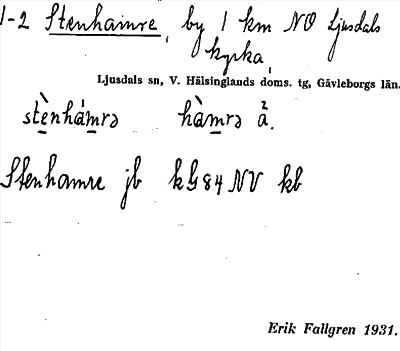 1-2 Stenhamre, by 1 km NO Ljusdals
kyrka,
Ljusdals sn, V. Hälsinglands doms. tg, Gävleborgs län.
stènhámrə hàmrə å̀.
Stenhamre jb kG84NV kb
Erik Fallgren 1931.